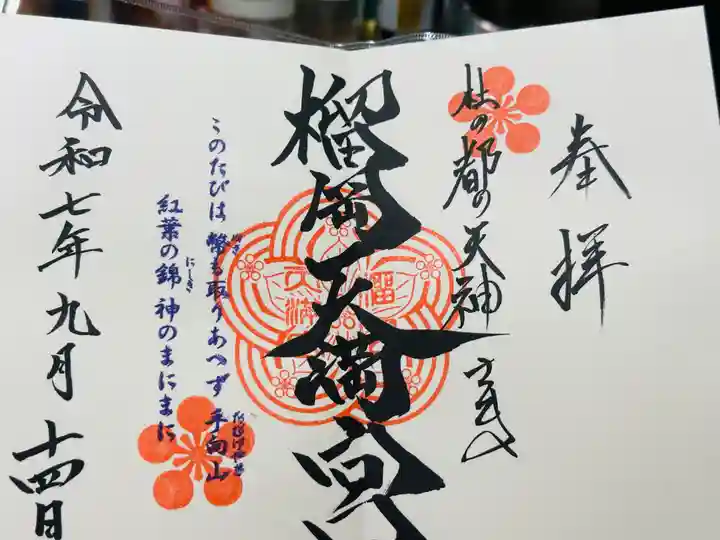 奉拝
杜の都の天神さま
榴岡天満宮
このたびは 幣も取りあへず 手向山
紅葉の錦 神のまにまに
にしき
令和七年九月十四日